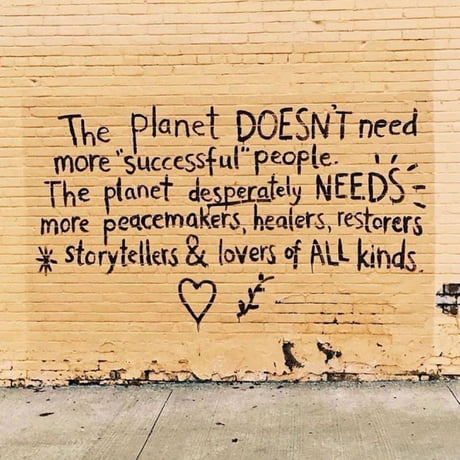 The planet DOESN'T need
more "successful" people.
The planet desperately NEEDS
more peacemakers, healers, restorers
storytellers & lovers of ALL kinds.